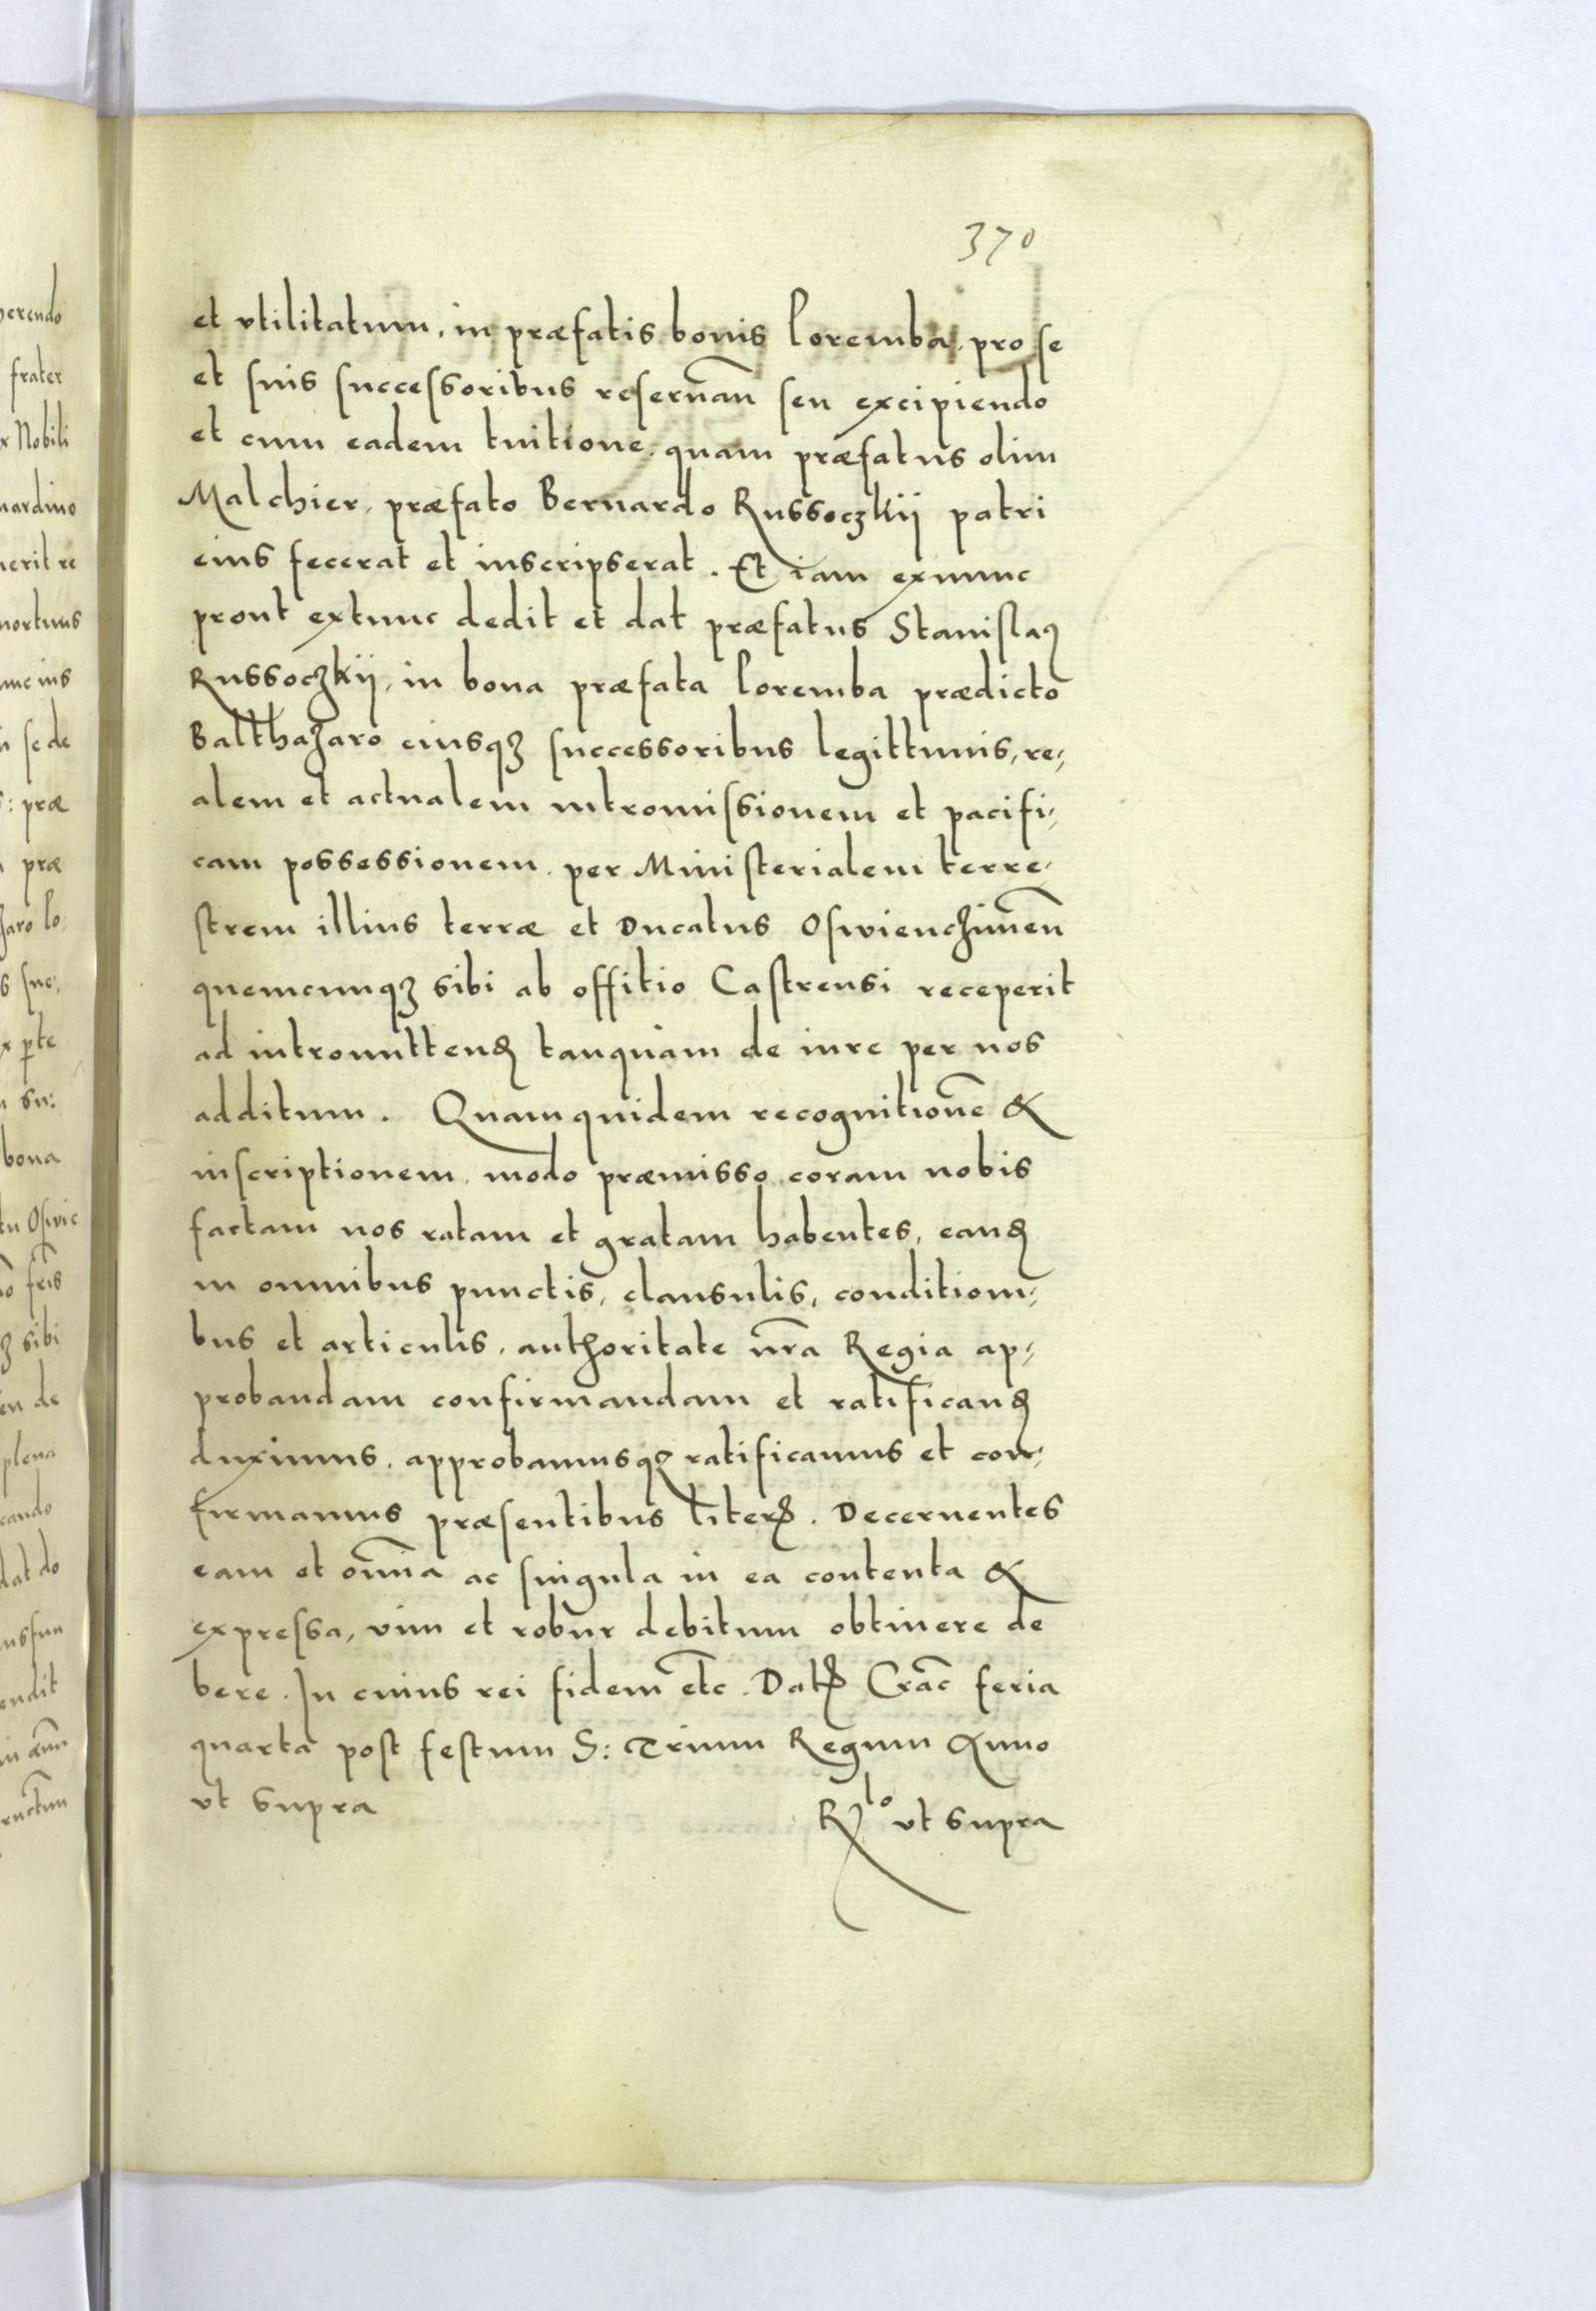 370
et vtilitatum, in præfatis bonis Poremba, pro se
et suis successoribus reseruan̄ seu excipiendo
et cum eadem tuitione, quam præfatus olim
Malchier, præfato Bernardo Russoczkij patri
eius fecerat et inscripserat. Et iam exnunc
prout extunc dedit et dat præfatus Stanislaꝰ
Russoczkij, in bona præfata Poremba prædicto
Balthazaro eiusqꝫ successoribus legittimis, re⸗
alem et actualem intromissionem et pacifi⸗
cam possessionem, per Ministerialem terre⸗
strem illius terræ et Ducatus Oswienczimen̄
quemcunqꝫ sibi ab offitio Castrensi receperit
ad intromittenꝺ tanquam de iure per nos
additum. Quamquidem recognitionē &
inscriptionem, modo præmisso coram nobis
factam nos ratam et gratam habentes, eanꝺ
in omnibus punctis, clausulis, conditioni⸗
bus et articulis, authoritate nr̄a Regia ap⸗
probandam confirmandam et ratificanꝺ
duximus, approbamusqꝫ ratificamus et con⸗
firmamus præsentibus literꝭ. Decernentes
eam et om̄ia ac singula in ea contenta &
expressa, vim et robur debitum obtinere de
bere. In cuius rei fidem etc̄. Datꝭ Crac̄ feria
quarta post festum S: Trium Regum Anno
vt supra
Rlo vt supra
erendo
frater
x Nobili
nardino
nerit re
mortuus
nunc ius
se de
: præ
præ
zaro Po
s suc⸗
x ꝑte
su:
bona
tu Oswie
fr̄is
ꝫ sibi
en de
plena
cando
dat do
nsfun
endit
in ann̄